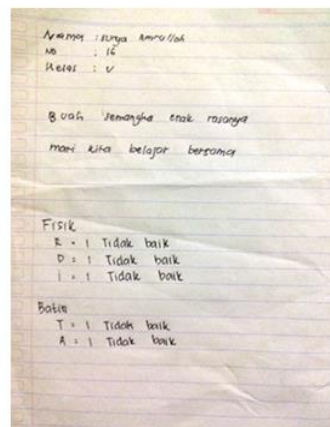 Nama : surya Amrullah
No : 16
Kelas : V
Buah semangka enak rasanya
mari kita belajar bersama
Fisik
R = 1 Tidak baik
D = 1 Tidak baik
i = 1 Tidak baik
Batin
T = 1 Tidak baik
A = 1 Tidak baik